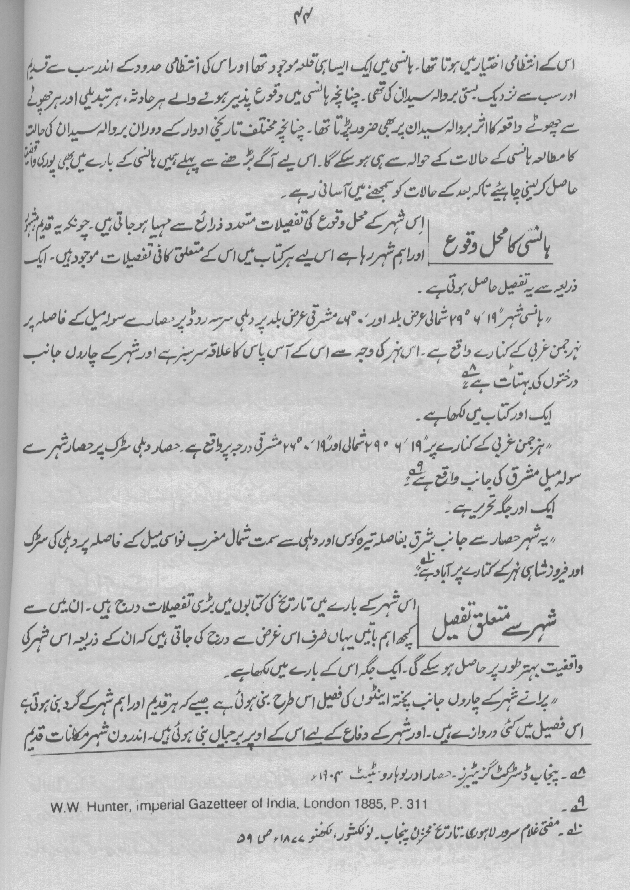 ۴۴
اس کے انتظامی اختیار میں ہوتا تھا۔ ہانسی میں ایک ایسا ہی قلعہ موجود تھا اور اس کی انتظامی حدود کے اندر سب سے قدیم
اور سب سے نزدیک بستی بروالہ سیدان کی تھی۔ چنانچہ ہانسی میں وقوع پذیر ہونے والے ہر حادثہ، ہر تبدیلی اور ہر چھوٹے
سے چھوٹے واقعہ کا اثر بروالہ سیدان پر بھی ضرور پڑتا تھا۔ چنانچہ مختلف تاریخی ادوار کے دوران بروالہ سیدان کی حالت
کا مطالعہ ہانسی کے حالات کے حوالہ سے ہی ہو سکے گا۔ اس لیے آگے بڑھنے سے پہلے ہمیں ہانسی کے بارے میں بھی پوری واقفیت
حاصل کر لینی چاہیئے تاکہ بعد کے حالات کو سمجھنے میں آسانی رہے۔
ہانسی کا محل وقوع
اس شہر کے محل وقوع کی تفصیلات متعدد ذرائع سے مہیا ہو جاتی ہیں۔ چونکہ یہ قدیم شہر
اور اہم شہر رہا ہے اس لیے ہر کتاب میں اس کے متعلق کافی تفصیلات موجود ہیں۔ ایک
ذریعہ سے یہ تفصیل حاصل ہوتی ہے۔
"ہانسی شہر ۱۹ً ۶َ ۲۹° شمالی عرض بلد اور ۰َ ۷۶° مشرقی عرض بلد پر دہلی سرسہ روڈ پر حصار سے سولہ میل کے فاصلہ پر
نہر جمن غربی کے کنارے واقع ہے۔ اس نہر کی وجہ سے اس کے آس پاس کا علاقہ سرسبز ہے اور شہر کے چاروں جانب
درختوں کی بہتات ہے ۸؎"
ایک اور کتاب میں لکھا ہے۔
"نہر جمن غربی کے کنارے پر ۱۹ً ۶َ ۲۹° شمالی اور ۱۹ً ۰َ ۷۶° مشرقی درجہ پر واقع ہے۔ حصار دہلی سڑک پر حصار شہر سے
سولہ میل مشرق کی جانب واقع ہے ۹؎"
ایک اور جگہ تحریر ہے۔
"یہ شہر حصار سے جانب شرق بفاصلہ تیرہ کوس اور دہلی سے سمت شمال مغرب نواسی میل کے فاصلہ پر دہلی کی سڑک
اور فیروز شاہی نہر کے کنارے پر آباد ہے ۱۰؎"
شہر سے متعلق تفصیل
اس شہر کے بارے میں تاریخ کی کتابوں میں بڑی تفصیلات درج ہیں۔ ان میں سے
کچھ اہم باتیں یہاں صرف اس غرض سے درج کی جاتی ہیں کہ ان کے ذریعہ اس شہر کی
واقفیت بہتر طور پر حاصل ہو سکے گی۔ ایک جگہ اس کے بارے میں لکھا ہے۔
"پرانے شہر کے چاروں جانب پختہ اینٹوں کی فصیل اس طرح بنی ہوئی ہے جیسے کہ ہر قدیم اور اہم شہر کے گرد بنی ہوتی ہے
اس فصیل میں کئی دروازے ہیں۔ اور شہر کے دفاع کے لیے اس کے اوپر برجیاں بنی ہوئی ہیں۔ اندرون شہر مکانات قدیم
۸؎۔ پنجاب ڈسٹرکٹ گزیٹیرز۔ حصار اور لوہارو سٹیٹ ۱۹۰۴ء
۹؎۔ W.W. Hunter, imperial Gazetteer of India, London 1885, P. 311
۱۰؎۔ مفتی غلام سرور لاہوری۔ تاریخ مخزن پنجاب۔ نولکشور، لکھنو ۱۸۷۷ء ص ۵۹